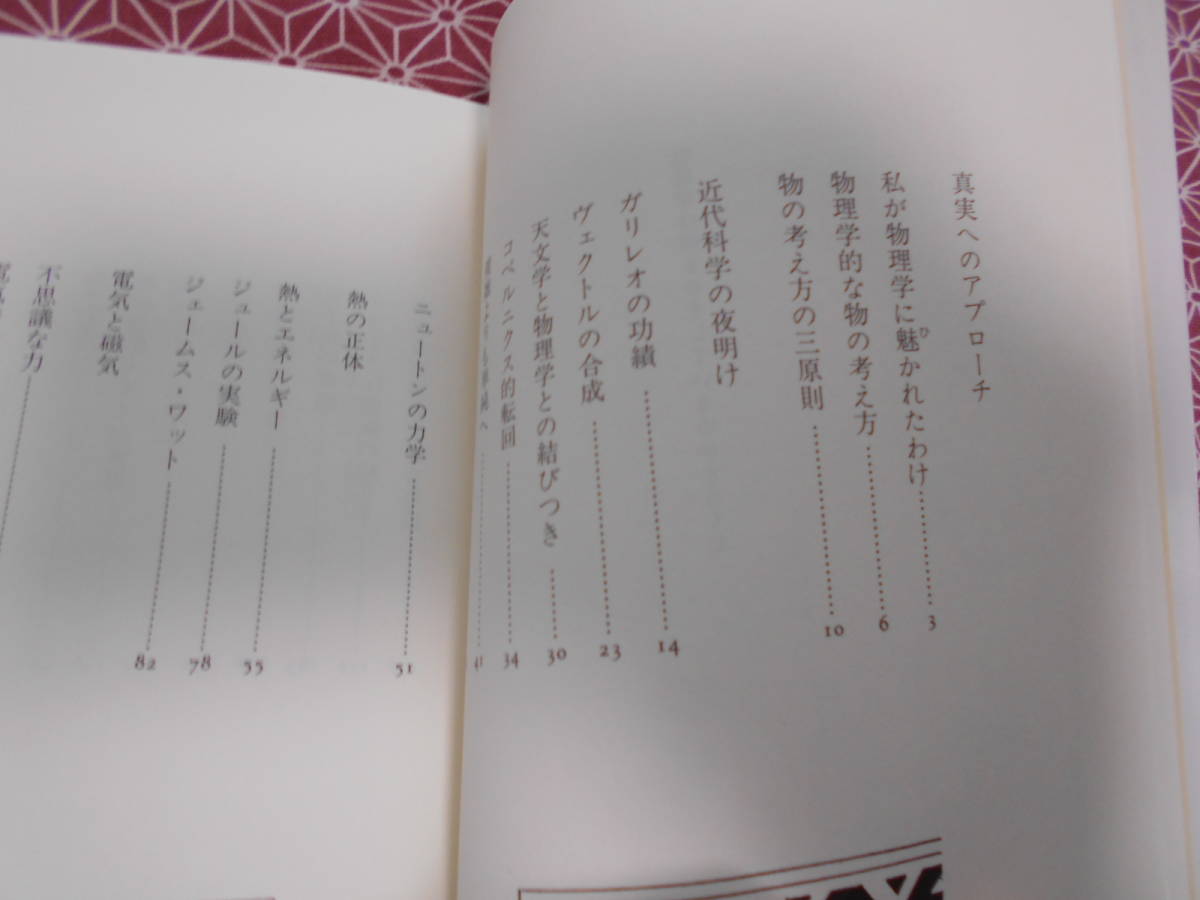 真実へのアプローチ
私が物理学に魅かれたわけ…………3
ひ
物理学的な物の考え方…………6
物の考え方の三原則…………10
近代科学の夜明け
ガリレオの功績…………14
ヴェクトルの合成…………23
天文学と物理学との結びつき…………30
コペルニクス的転回…………34
…………41
ニュートンの力学…………51
熱の正体
熱とエネルギー…………55
ジュールの実験…………78
ジェームス・ワット…………82
電気と磁気
不思議な力…………